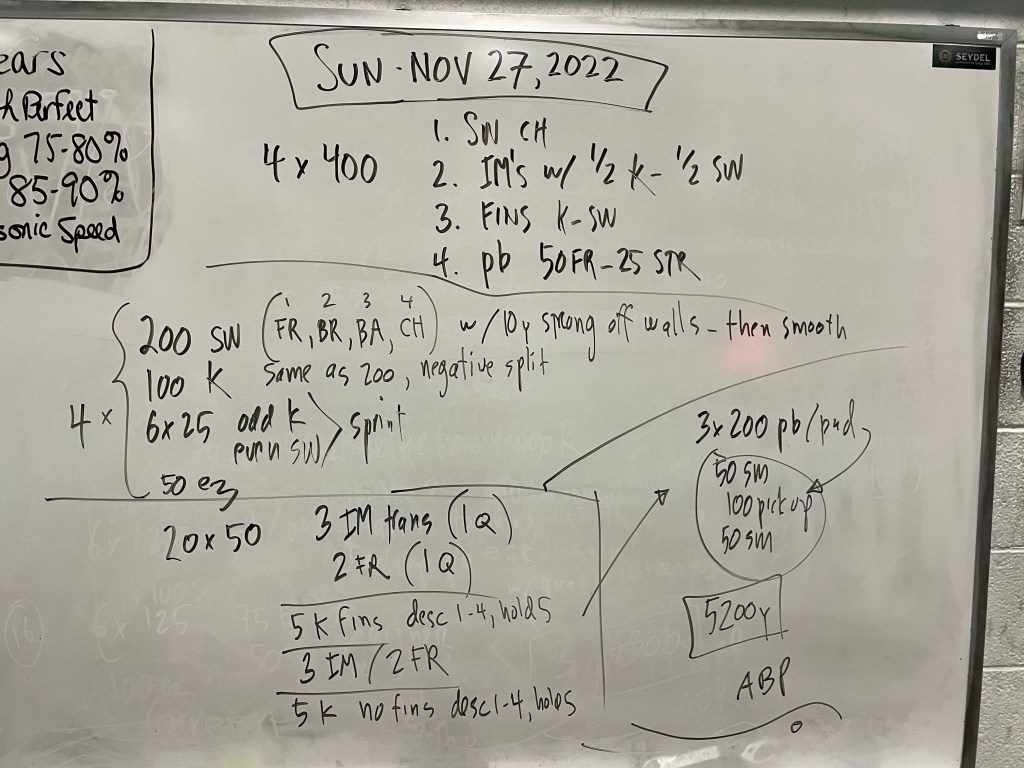 ears
h Perfect
g 75-80%
85-90%
sonic Speed
SUN. NOV 27, 2022
SEYDEL
4 x 400
1. SW CH
2. IM's w/ 1/2 K - 1/2 SW
3. FINS K-SW
4. pb 50FR-25 STR
4 x
1 2 3 4
200 SW (FR, BR, BA, CH) w/10y sprong off walls - then smooth
100 K Same as 200, negative split
6x25 odd K
evrn SW > sprint
50 ez
20 x 50 3 IM trans (1Q)
2 FR (1Q)
5 K Fins desc 1-4, hold 5
3 IM / 2 FR
5 K no fins desc 1-4, hold 5
3x200 pb/pad
50 sm
100 pick up
50 sm
5200y
ABP
6 x 125 75